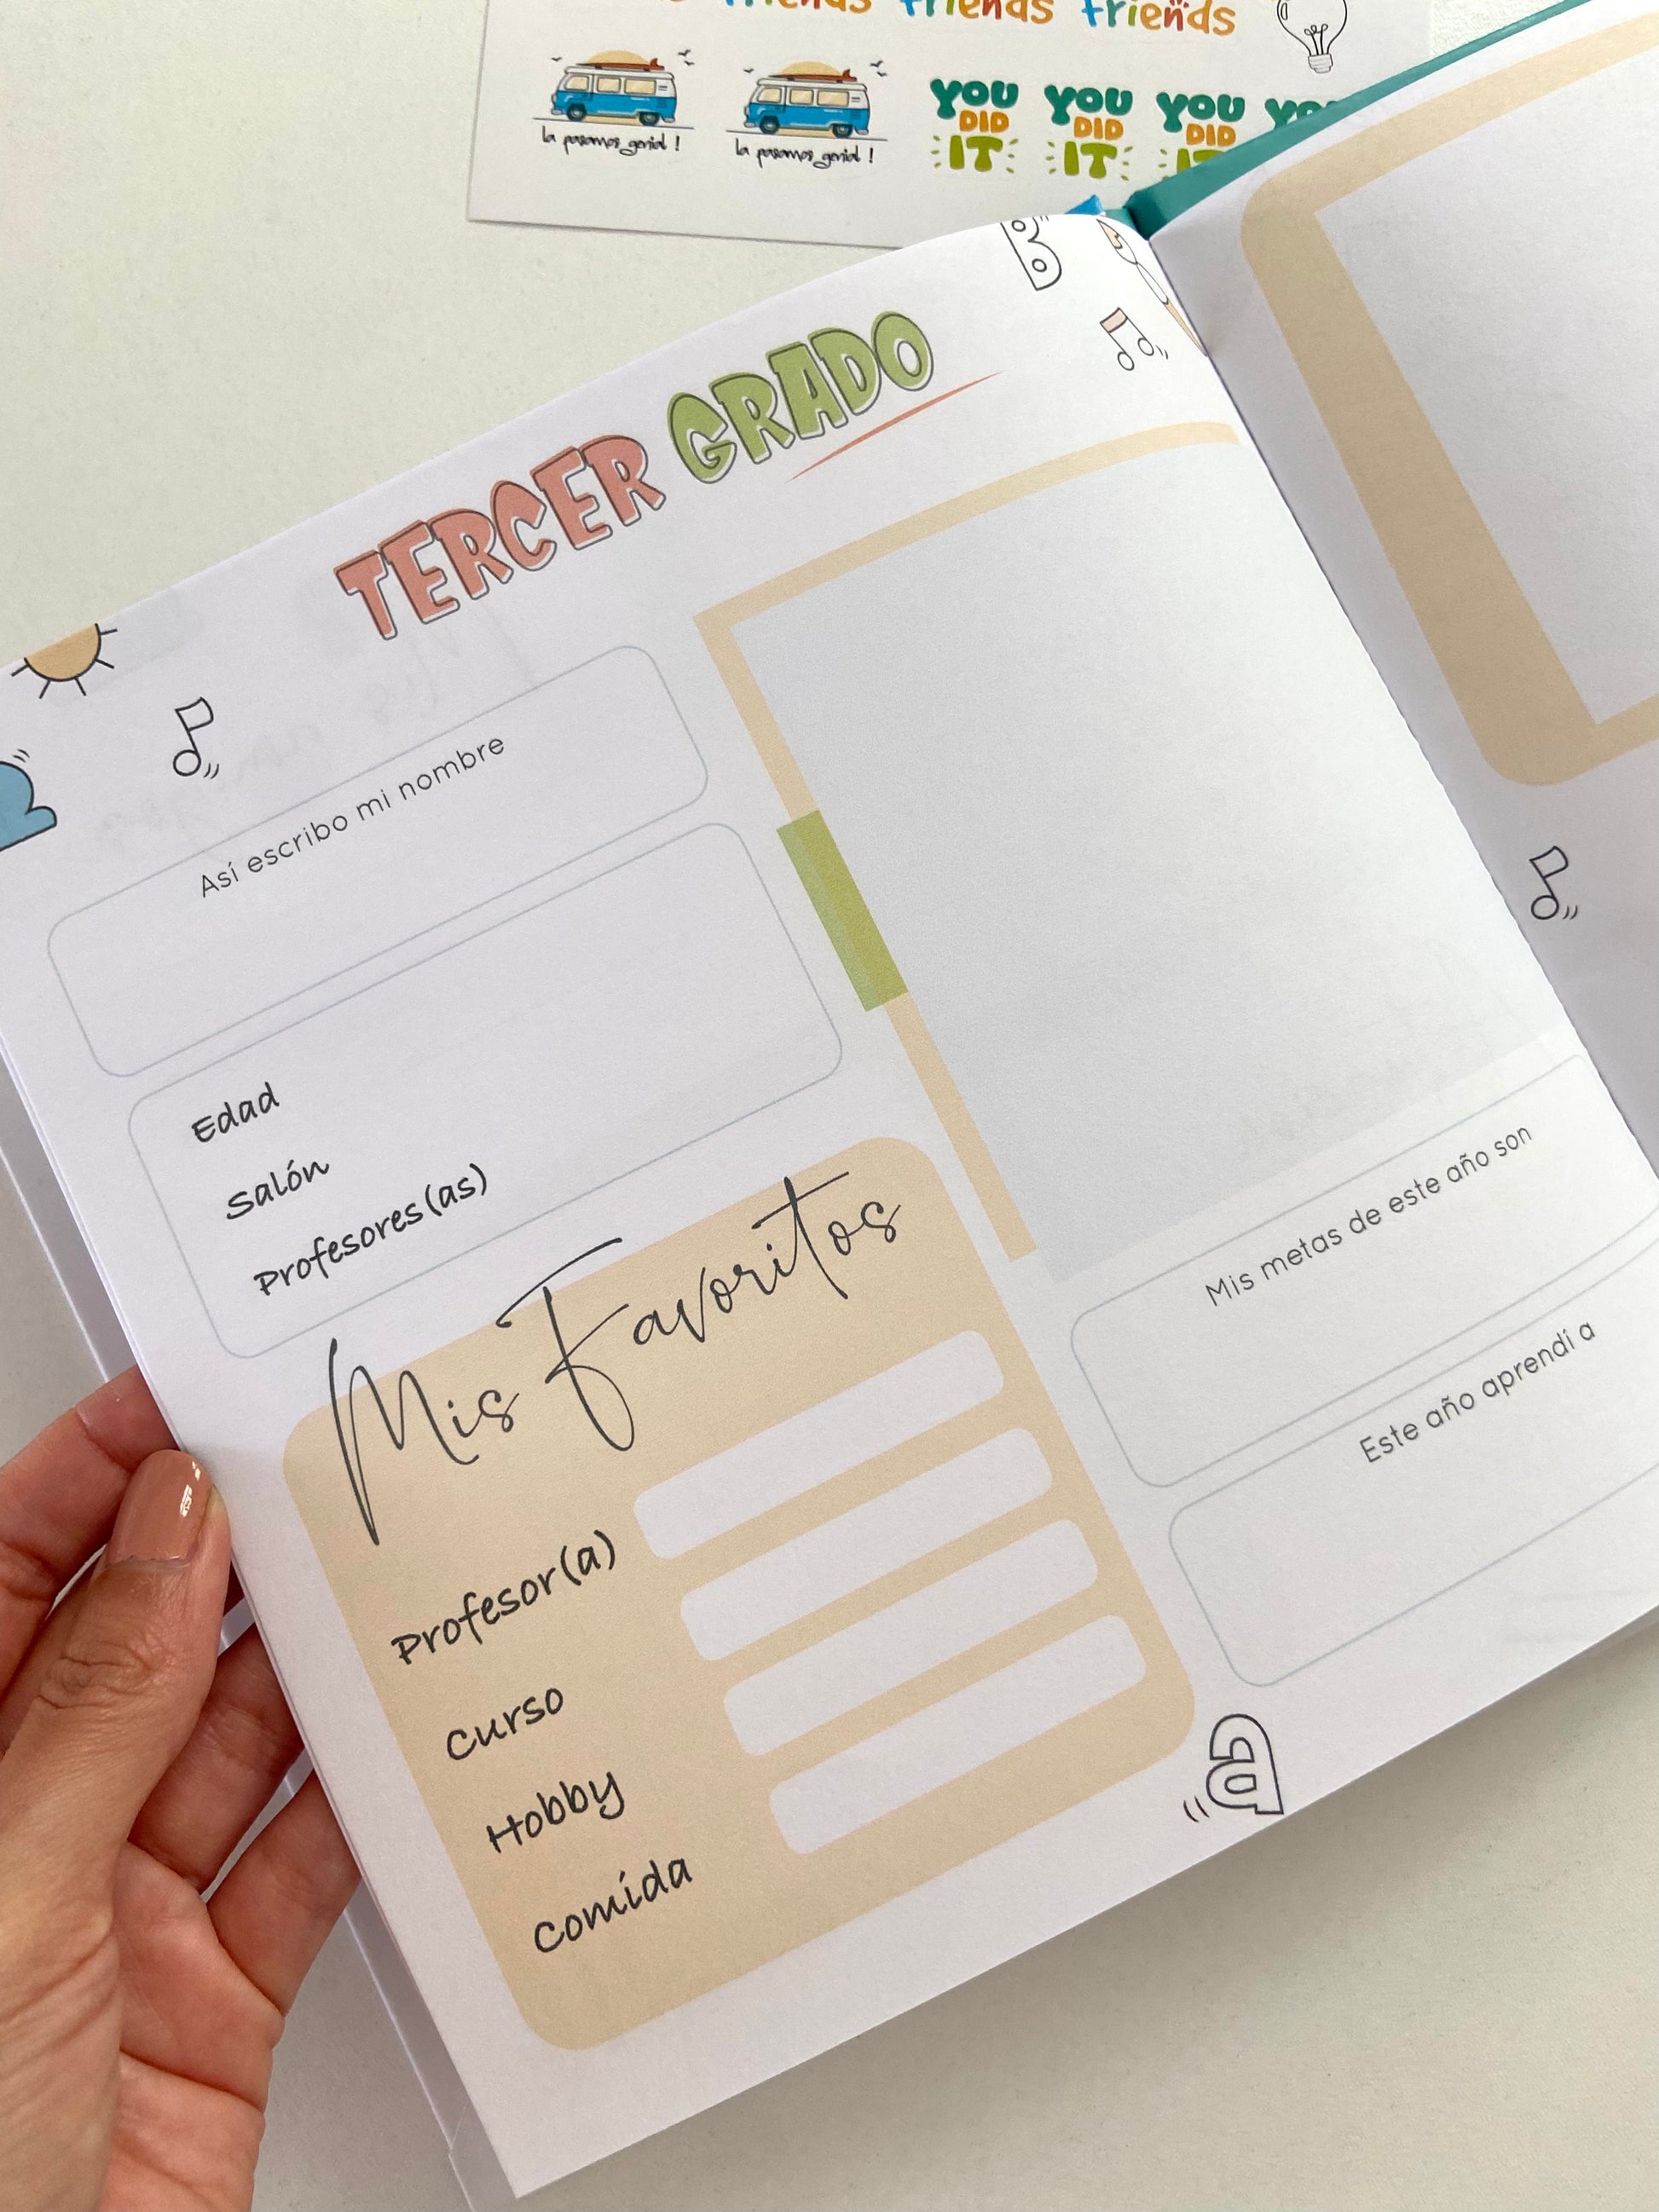 friends friends friends
la pasamos genial ! la pasamos genial ! YOU DID IT YOU DID IT YOU DID IT
B
TERCER GRADO
Así escribo mi nombre
Edad
Salón
Profesores(as)
Mis Favoritos
Profesor(a)
Curso
Hobby
Comida
Mis metas de este año son
Este año aprendí a
a